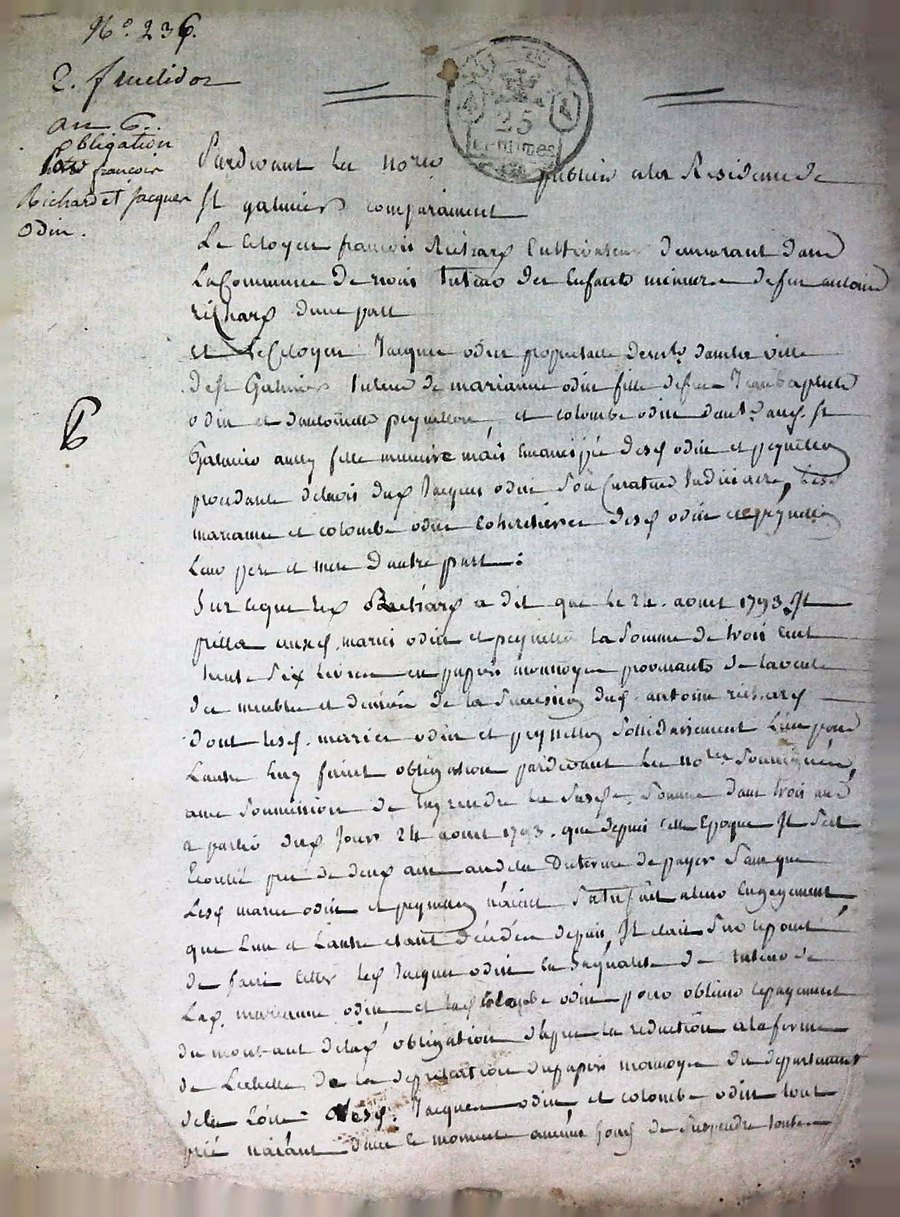 N.º 236.
2. fructidor
an 6.
Obligation
françois
Richard et Jacques
Odin.
25
centimes
Pardevant Les No.res publics a la Residence de
St galmier comparaissent
Le Citoyen françois Richard Cultivateur demeurant dans
La Commune de tuteur des Enfants mineurs de feu antoine
richard d'une part
et Le Citoyen Jacques odin propriétaire dem.t dans la ville
de St Galmier tuteur de marianne odin fille de feu Jean baptiste
odin et d'antoinette peyrellon, et colombe odin dem.t aud. St
Galmier aussy fille mineure mais Emancipée desd odin et peyrellon
procedante de lavis dud Jacques odin Son Curateur Judiciaire, Lesd
marianne et colombe odin Coheritieres desd odin et peyrellon
Leur pere et mere d'autre part :
Sur ceque led Richard a dit que le 24. aout 1793. Il
pretta auxd. mariés odin et peyrellon La Somme de trois cent
trente Six Livres en papier monnoye provenants de la vente
des meubles et denrées de la Succession dud. antoine richard
dont lesd. mariés odin et peyrellon Sollidairement L'un pour
L'autre Luy firent obligation pardevant Les No.res Soussignés,
avec Soumission de Luy rendre la Susd. Somme dans trois ans
a partir dud Jour 24 aout 1793. que depuis cette Epoque Il S'est
Ecoulé prés de deux ans au dela Du terme de payer Sans que
Lesd mariés odin et peyrellon n'aient Satisfait a leur Engagement
que L'un et L'autre etant décédés depuis, Il etait Sur le point
de faire citter led Jacques odin En Sa qualité de tuteur de
Lad. marianne odin et lad colombe odin pour obtenir le payement
du montant de lad obligation d'apres la reduction a la forme
de L'echelle de la depréciation du papier monnoye du departement
de la Loire Lesd. Jacques odin et colombe odin l'ont
prié n'aiant dans le moment aucuns fonds de Suspendre toutes